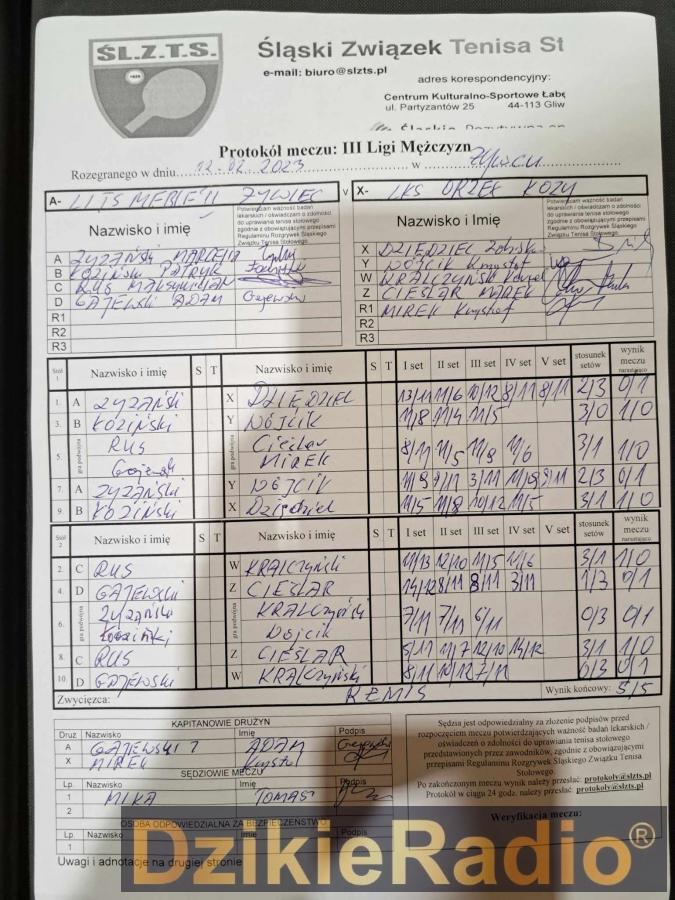 ŚL.Z.T.S.
Śląski Związek Tenisa St
e-mail: biuro@slzts.pl
adres korespondencyjny:
Centrum Kulturalno-Sportowe Łabę
ul. Partyzantów 25 44-113 Gliw
Protokół meczu: III Ligi Mężczyzn
Rozegranego w dniu 02.02.2023 w Żywcu
A- ŻYWIEC v X- LKS ORZEŁ KOZY
Nazwisko i imię Potwierdzam ważność badań lekarskich / oświadczam o zdolności do uprawiania tenisa stołowego zgodnie z obowiązującymi przepisami Regulaminu Rozgrywek Śląskiego Związku Tenisa Stołowego
Nazwisko i Imię Potwierdzam ważność badań lekarskich / oświadczam o zdolności do uprawiania tenisa stołowego zgodnie z obowiązującymi przepisami Regulaminu Rozgrywek Śląskiego Związku Tenisa Stołowego
A ZYZAŃSKI MARCELI
B KOZIŃSKI PATRYK
C RUS MAKSYMILIAN
D GAJEWSKI ADAM Gajewski
R1
R2
R3
X DZIĘDZIEL
Y WÓJCIK Krzysztof
W KRALCZYŃSKI
Z CIEŚLAR MAREK
R1 MIREK Krzysztof
R2
R3
Stół 1 Nazwisko i imię S T Nazwisko i imię S T I set II set III set IV set V set stosunek setów wynik meczu narastająco
1. A ZYZAŃSKI X DZIĘDZIEL 13/11 11/6 10/12 8/11 8/11 2/3 0/1
3. B KOZIŃSKI Y WÓJCIK 11/8 11/4 11/5 3/0 1/0
5. gra podwójna RUS Cieślar 8/11 11/5 11/8 11/6 3/1 1/0
Gajewski MIREK
7. A ZYZAŃSKI Y WÓJCIK 3/11 2/3 0/1
9. B KOZIŃSKI X Dziędziel 11/5 11/8 10/12 11/5 3/1 1/0
Stół 2 Nazwisko i imię S T Nazwisko i imię S T I set II set III set IV set V set stosunek setów wynik meczu narastająco
2. C RUS W KRALCZYŃSKI 11/13 12/10 11/5 11/6 3/1 1/0
4. D GAJEWSKI Z CIEŚLAR 14/12 8/11 8/11 3/11 1/3 0/1
6. gra podwójna ZYZAŃSKI KRALCZYŃSKI 7/11 7/11 6/11 0/3 0/1
Koziński Wójcik
8. C RUS Z CIEŚLAR 11/7 12/10 14/12 3/1 1/0
10. D GAJEWSKI W KRALCZYŃSKI 8/11 10/12 7/11 0/3 0/1
Zwycięzca: REMIS Wynik końcowy: 5/5
KAPITANOWIE DRUŻYN
Druż Nazwisko Imię Podpis
A GAJEWSKI ADAM Gajewski
X MIREK
SĘDZIOWIE MECZU
Lp. Nazwisko Imię Podpis
1 MIKA TOMASZ
2
OSOBA ODPOWIEDZIALNA ZA BEZPIECZEŃSTWO
Lp. Nazwisko Imię Podpis
1
Uwagi i adnotacje na drugiej stronie
Sędzia jest odpowiedzialny za złożenie podpisów przed
rozpoczęciem meczu potwierdzających ważność badań lekarskich /
oświadczeń o zdolności do uprawiania tenisa stołowego
przedstawionych przez zawodników, zgodnie z obowiązującymi
przepisami Regulaminu Rozgrywek Śląskiego Związku Tenisa
Stołowego.
Po zakończonym meczu wynik należy przesłać: protokoly@slzts.pl
Protokół w ciągu 24 godz. należy przesłać: protokoly@slzts.pl
Weryfikacja meczu:
DzikieRadio®